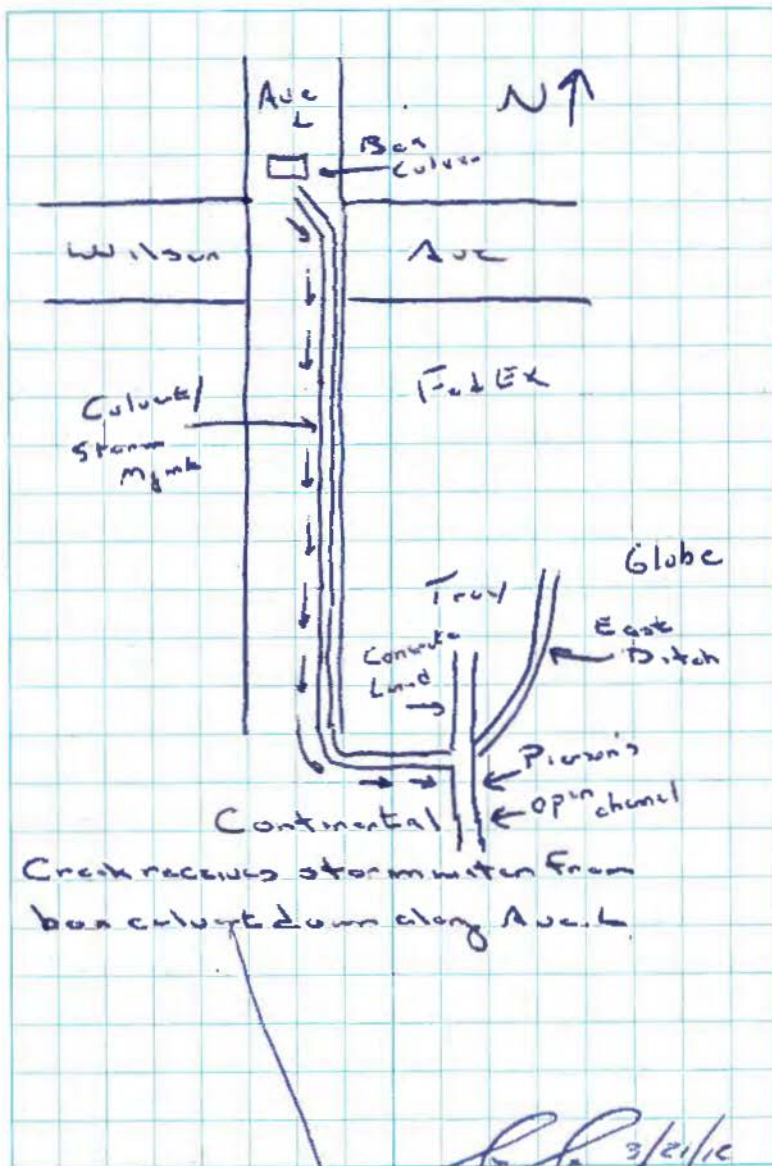 Ave
L
N
Box
Culvert
Wilson
Ave
FedEx
Culvert/
Storm
Mgmt
Globe
Troy
East
Ditch
Concrete
Lined
Pierson's
open channel
Continental
Creek receives stormwater from
box culvert down along Ave. L